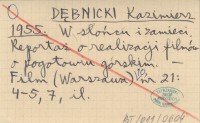 DĘBNICKI Kazimierz
1955: W słońcu i zamieci.
Reportaż o realizacji filmów
o pogotowiu górskim. –
Film (Warszawa) nr 21:
4-5, 7, il.